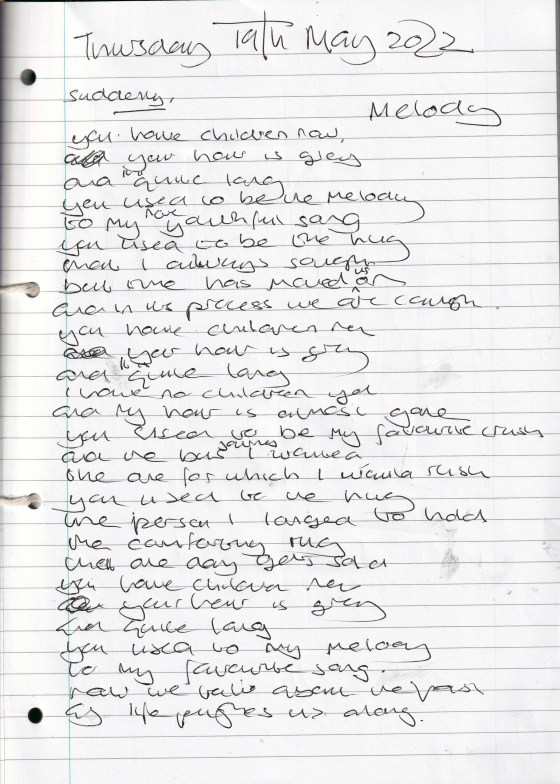 Thursday 19th May 2022
suddenly,
Melody
you have children now,
your hair is grey
and it's quite long
you used to be the melody
to my more youthful song
you used to be the hug
that I always sought
but time has moved us on
and in its process we are caught
you have children now
your hair is grey
and it's quite long
I have no children yet
and my hair is almost gone
you used to be my favourite crush
and the bus journey I wanted
the one for which I would rush
you used to be the hug
the person I longed to hold
the comforting rug
that one day gets sold
you have children now
your hair is grey
and quite long
you used to my melody
to my favourite song.
now we talk about the past
as life pushes us along.